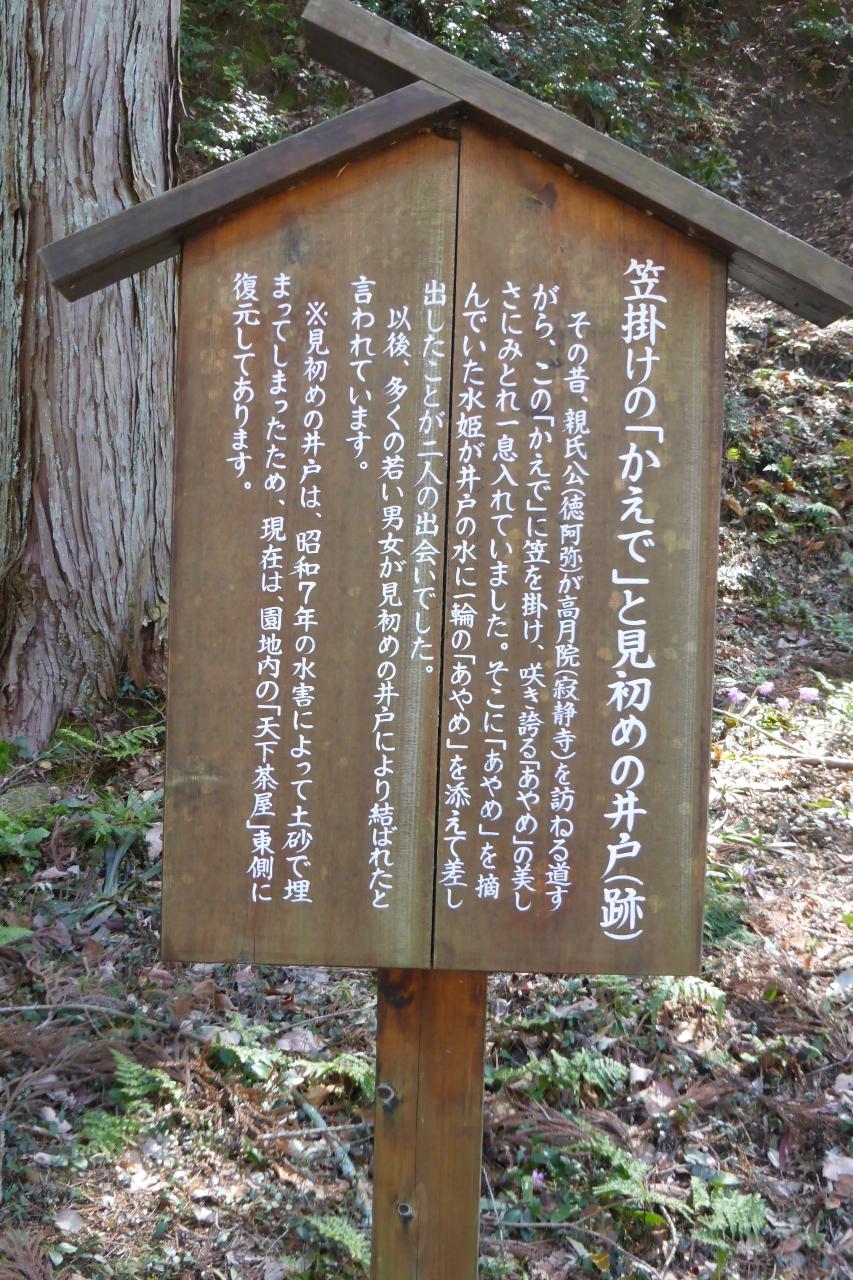 笠掛けの「かえで」と見初めの井戸(跡)
その昔、親氏公(徳阿弥)が高月院(寂静寺)を訪ねる道す
がら、この「かえで」に笠を掛け、咲き誇る「あやめ」の美し
さにみとれ一息入れていました。そこに「あやめ」を摘
んでいた水姫が井戸の水に一輪の「あやめ」を添えて差し
出したことが二人の出会いでした。
以後、多くの若い男女が見初めの井戸により結ばれたと
言われています。
※見初めの井戸は、昭和7年の水害によって土砂で埋
まってしまったため、現在は、園地内の「天下茶屋」東側に
復元してあります。